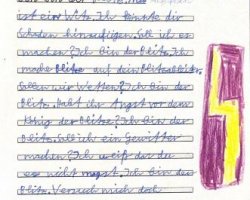 ist ein Witz. Ich könnte dir
Schaden hinzufügen. Soll ich es
machen? Ich bin der Blitz. Ich
mache Blitze auf dein Blitzableiter.
Sollen wir Wetten? Ich bin der
Blitz. Habt ihr Angst vor dem
König der Blitze? Ich bin der
Blitz. Soll ich ein Gewitter
machen? Ich weiß das du
es nicht magst. Ich bin der
Blitz. Versuch mich doch